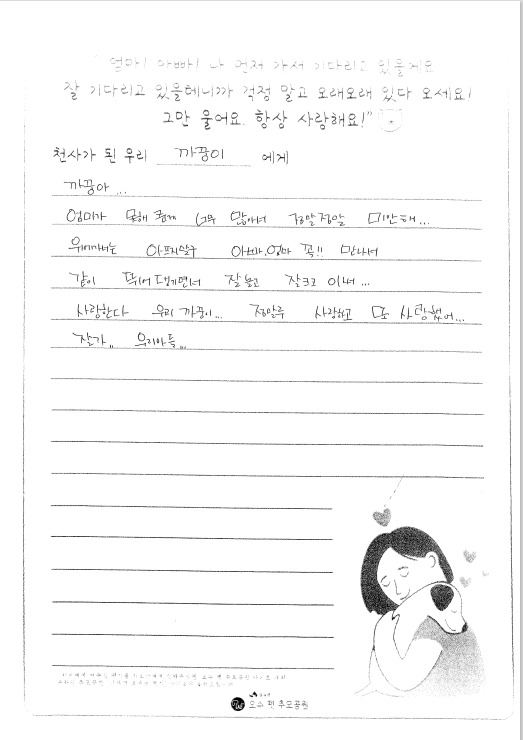 "엄마! 아빠! 나 먼저 가서 기다리고 있을게요
잘 기다리고 있을테니까 걱정 말고 오래오래 있다 오세요!
그만 울어요. 항상 사랑해요!"
천사가 된 우리 까꿍이 에게
까꿍아...
엄마가 못해준게 너무 많아서 정말정말 미안해...
위에가서는 아프지말구 아빠,엄마 꼭!! 만나서
같이 뛰어 댕기면서 잘놀고 잘크고 이써...
사랑한다 우리 까꿍이... 정말루 사랑하고 또 사랑했어...
잘가,, 우리아들...
오수 펫 추모공원